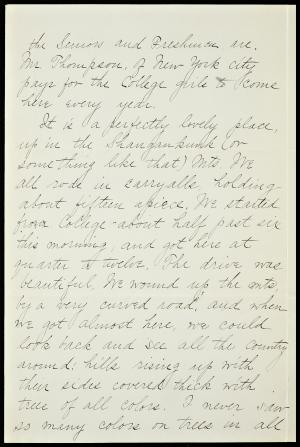 the Seniors and Freshmen are.
Mr Thompson, of New York city
pays for the College girls to come
here every year.
It is a perfectly lovely place,
up in the Shangankunk (or
something like that) Mts. We
all rode in carryalls, holding
about fifteen apiece. We started
from College about half past six
this morning, and got here at
quarter to twelve. The drive was
beautiful. We wound up the mts,
by a very curved road, and when
we got almost here, we could
look back and see all the country
around; hills rising up with
their sides covered thick with
trees of all colors. I never saw
so many colors on trees in all